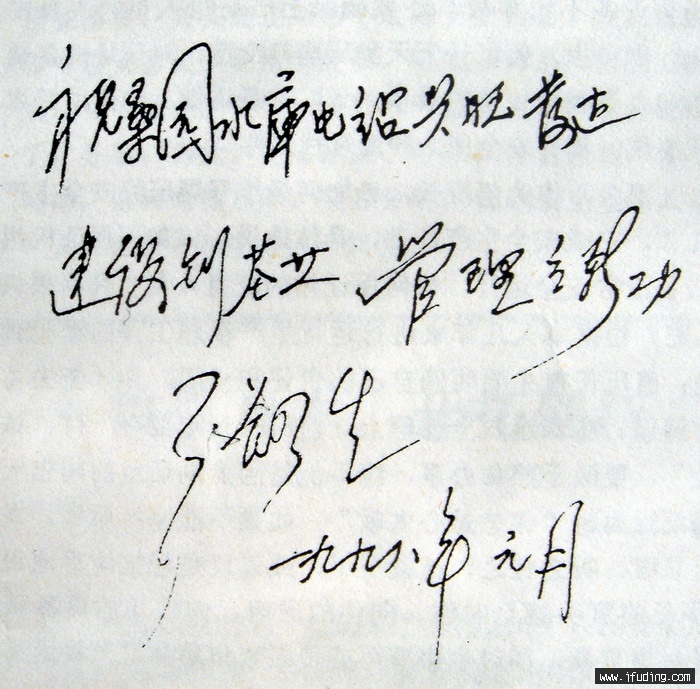 祝桑园水库电站兴旺发达
建设创基业 管理立新功
一九九八年元月
www.ifuding.com